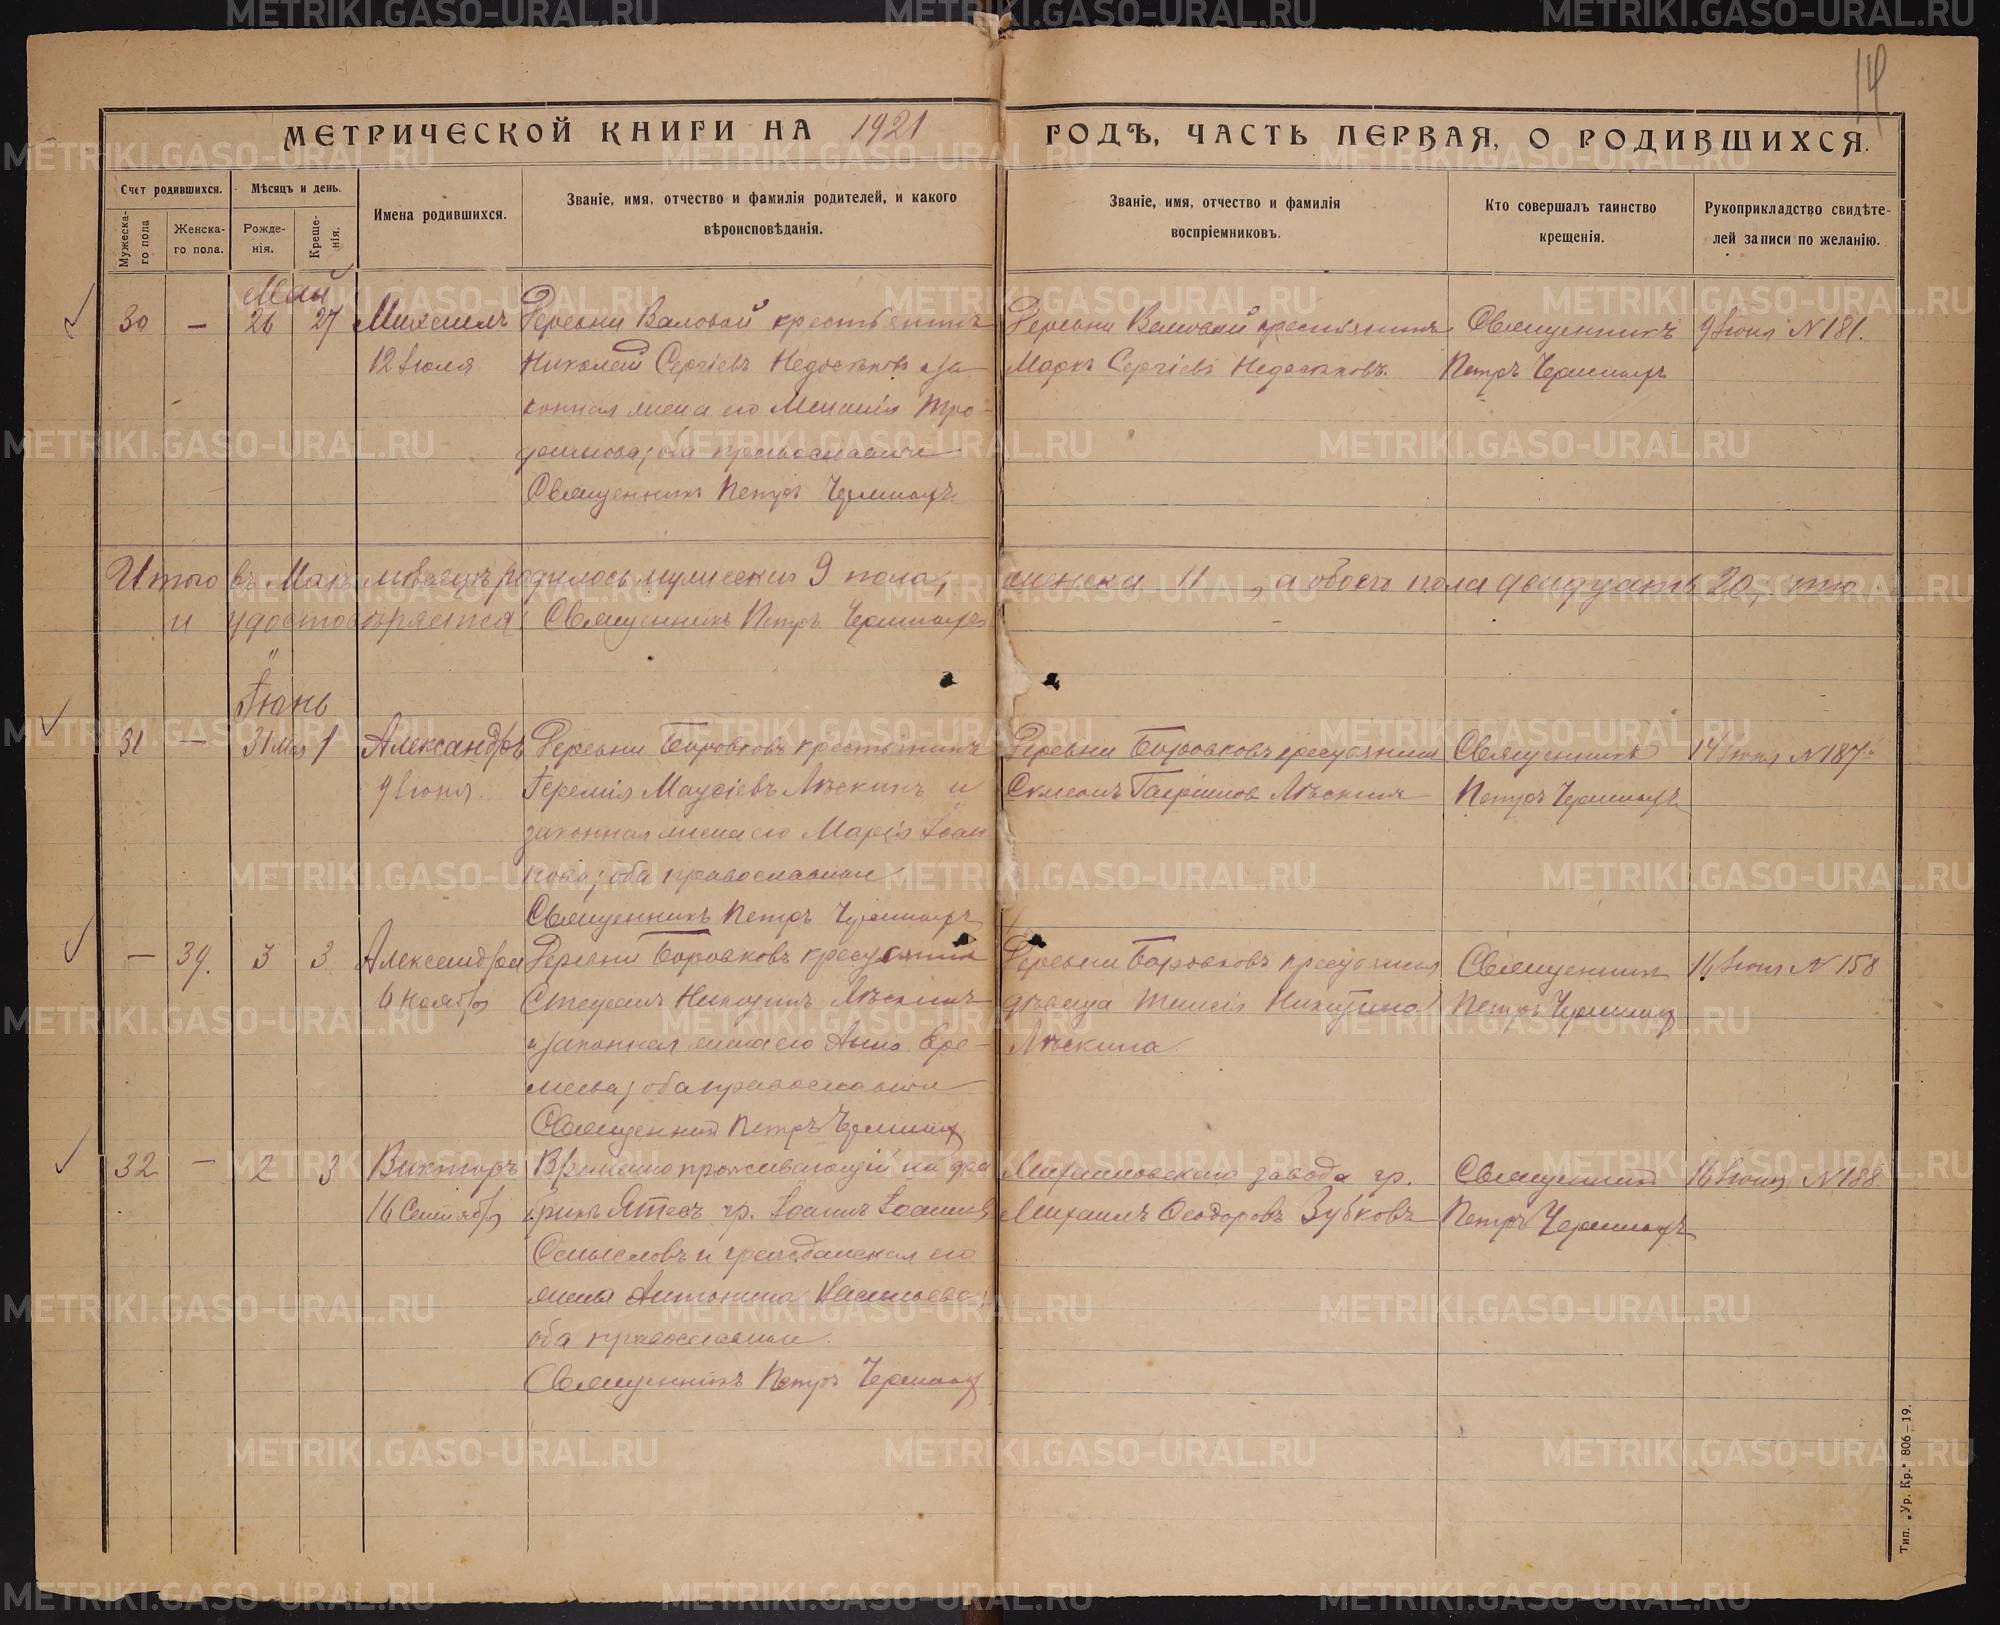 14
МЕТРИЧЕСКОЙ КНИГИ НА 1921 ГОДЪ, ЧАСТЬ ПЕРВАЯ, О РОДИВШИХСЯ.
Счет родившихся.
Мужеска-
го пола
Женска-
го пола.
Мѣсяцъ и день.
Рожде-
нія.
Креще-
нія.
Имена родившихся.
Званіе, имя, отчество и фамилія родителей, и какого
вѣроисповѣданія.
Званіе, имя, отчество и фамилія
воспріемниковъ.
Кто совершалъ таинство
крещенія.
Рукоприкладство свидѣте-
лей записи по желанію.
Май
30 — 26 27 Михаилъ
12 Іюля
Деревни Валовой крестьянинъ
Николай Сергіевъ Недоспѣковъ и за-
конная жена его Меланія Тро-
; оба православные
Священникъ Петръ
Деревни Валовой крестьянинъ
Маркъ Сергіевъ Недоспѣковъ.
Священникъ
Петръ
9 Іюня N 181.
Итого въ Маѣ мѣсяцѣ родилось мужеска 9 пола, женска 11, а обоего пола двадцать 20, что
и удостовѣряется: Священникъ Петръ
Іюнь
31 — 31 Мая 1 Александръ
9 Іюня.
Деревни Боровковъ крестьянинъ
Іеремія Лѣскинъ и
законная жена его Марія Іоан-
нова; оба православные
Священникъ Петръ
Деревни Боровковъ крестьянинъ
Симеонъ Лѣскинъ
Священникъ
Петръ
14 Іюня N 187
— 39. 3 3 Александра
6 Ноября
Деревни Боровковъ крестьянинъ
Стефанъ Никитинъ Лѣскинъ
и законная жена его Анна Ере-
меева; оба православные
Священникъ Петръ
Деревни Боровковъ крестьянская
дѣвица Никитина
Лѣскина
Священникъ
Петръ
16 Іюня N 158
32 — 2 3 Викторъ
16 Сентября
Временно проживающій на
гр. Іоаннъ Іоанновъ
Осмысловъ и гражданская его
жена Антонина Васильева;
оба православные.
Священникъ Петръ
Михайловскаго завода гр.
Михаилъ Ѳеодоровъ Зубковъ
Священникъ
Петръ
16 Іюня N 188
Тип. „Ур. Кр." 806—19.
METRIKI.GASO-URAL.RU